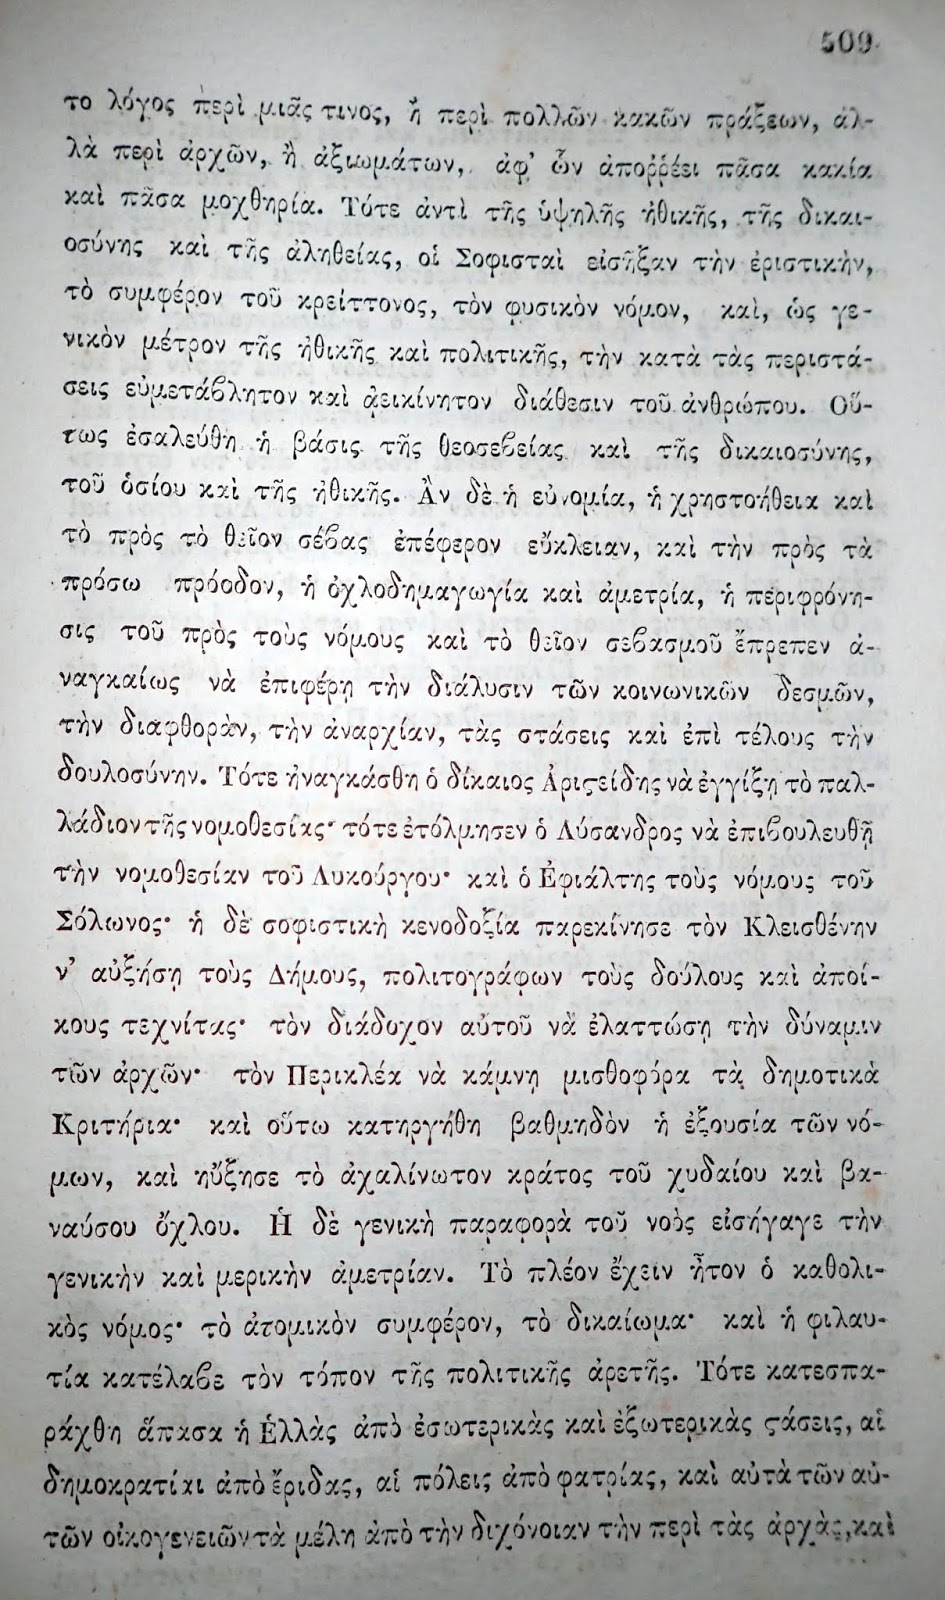 509
το λόγος περὶ μιᾶς τινος, ἢ περὶ πολλῶν κακῶν πράξεων, ἀλ-
λὰ περὶ ἀρχῶν, ἢ ἀξιωμάτων, ἀφ’ ὧν ἀποῤῥέει πᾶσα κακία
καὶ πᾶσα μοχθηρία. Τότε ἀντὶ τῆς ὑψηλῆς ἠθικῆς, τῆς δικαι-
οσύνης καὶ τῆς ἀληθείας, οἱ Σοφισταὶ εἰσῆξαν τὴν ἐριστικὴν,
τὸ συμφέρον τοῦ κρείττονος, τὸν φυσικὸν νόμον, καὶ, ὡς γε-
νικὸν μέτρον τῆς ἠθικῆς καὶ πολιτικῆς, τὴν κατὰ τὰς περιστά-
σεις εὐμετάβλητον καὶ ἀεικίνητον διάθεσιν τοῦ ἀνθρώπου. Οὕ-
τως ἐσαλεύθη ἡ βάσις τῆς θεοσεβείας καὶ τῆς δικαιοσύνης,
τοῦ ὁσίου καὶ τῆς ἠθικῆς. Ἂν δὲ ἡ εὐνομία, ἡ χρηστοήθεια καὶ
τὸ πρὸς τὸ θεῖον σέβας ἐπέφερον εὔκλειαν, καὶ τὴν πρὸς τὰ
πρόσω πρόοδον, ἡ ὀχλοδημαγωγία καὶ ἀμετρία, ἡ περιφρόνη-
σις τοῦ πρὸς τοὺς νόμους καὶ τὸ θεῖον σεβασμοῦ ἔπρεπεν ἀ-
ναγκαίως νὰ ἐπιφέρῃ τὴν διάλυσιν τῶν κοινωνικῶν δεσμῶν,
τὴν διαφθορὰν, τὴν ἀναρχίαν, τὰς στάσεις καὶ ἐπὶ τέλους τὴν
δουλοσύνην. Τότε ἠναγκάσθη ὁ δίκαιος Ἀριϛείδης νὰ ἐγγίξῃ τὸ παλ-
λάδιον τῆς νομοθεσίας· τότε ἐτόλμησεν ὁ Λύσανδρος νὰ ἐπιβουλευθῇ
τὴν νομοθεσίαν τοῦ Λυκούργου· καὶ ὁ Ἐφιάλτης τοὺς νόμους τοῦ
Σόλωνος· ἡ δὲ σοφιστικὴ κενοδοξία παρεκίνησε τὸν Κλεισθένην
ν’ αὐξήσῃ τοὺς Δήμους, πολιτογράφων τοὺς δούλους καὶ ἀποί-
κους τεχνίτας· τὸν διάδοχον αὐτοῦ νὰ ἐλαττώσῃ τὴν δύναμιν
τῶν ἀρχῶν· τὸν Περικλέα νὰ κάμνῃ μισθοφόρα τὰ δημοτικὰ
Κριτήρια· καὶ οὕτω κατηργήθη βαθμηδὸν ἡ ἐξουσία τῶν νό-
μων, καὶ ηὔξησε τὸ ἀχαλίνωτον κράτος τοῦ χυδαίου καὶ βα-
ναύσου ὄχλου. Ἡ δὲ γενικὴ παραφορὰ τοῦ νοὸς εἰσήγαγε τὴν
γενικὴν καὶ μερικὴν ἀμετρίαν. Τὸ πλέον ἔχειν ἦτον ὁ καθολι-
κὸς νόμος· τὸ ἀτομικὸν συμφέρον, τὸ δικαίωμα· καὶ ἡ φιλαυ-
τία κατέλαβε τὸν τόπον τῆς πολιτικῆς ἀρετῆς. Τότε κατεσπα-
ράχθη ἅπασα ἡ Ἑλλὰς ἀπὸ ἐσωτερικὰς καὶ ἐξωτερικὰς ϛάσεις, αἱ
δημοκρατίαι ἀπὸ ἔριδας, αἱ πόλεις ἀπὸ φατρίας, καὶ αὐτὰ τῶν αὐ-
τῶν οἰκογενειῶν τὰ μέλη ἀπὸ τὴν διχόνοιαν τὴν περὶ τὰς ἀρχὰς, καὶ